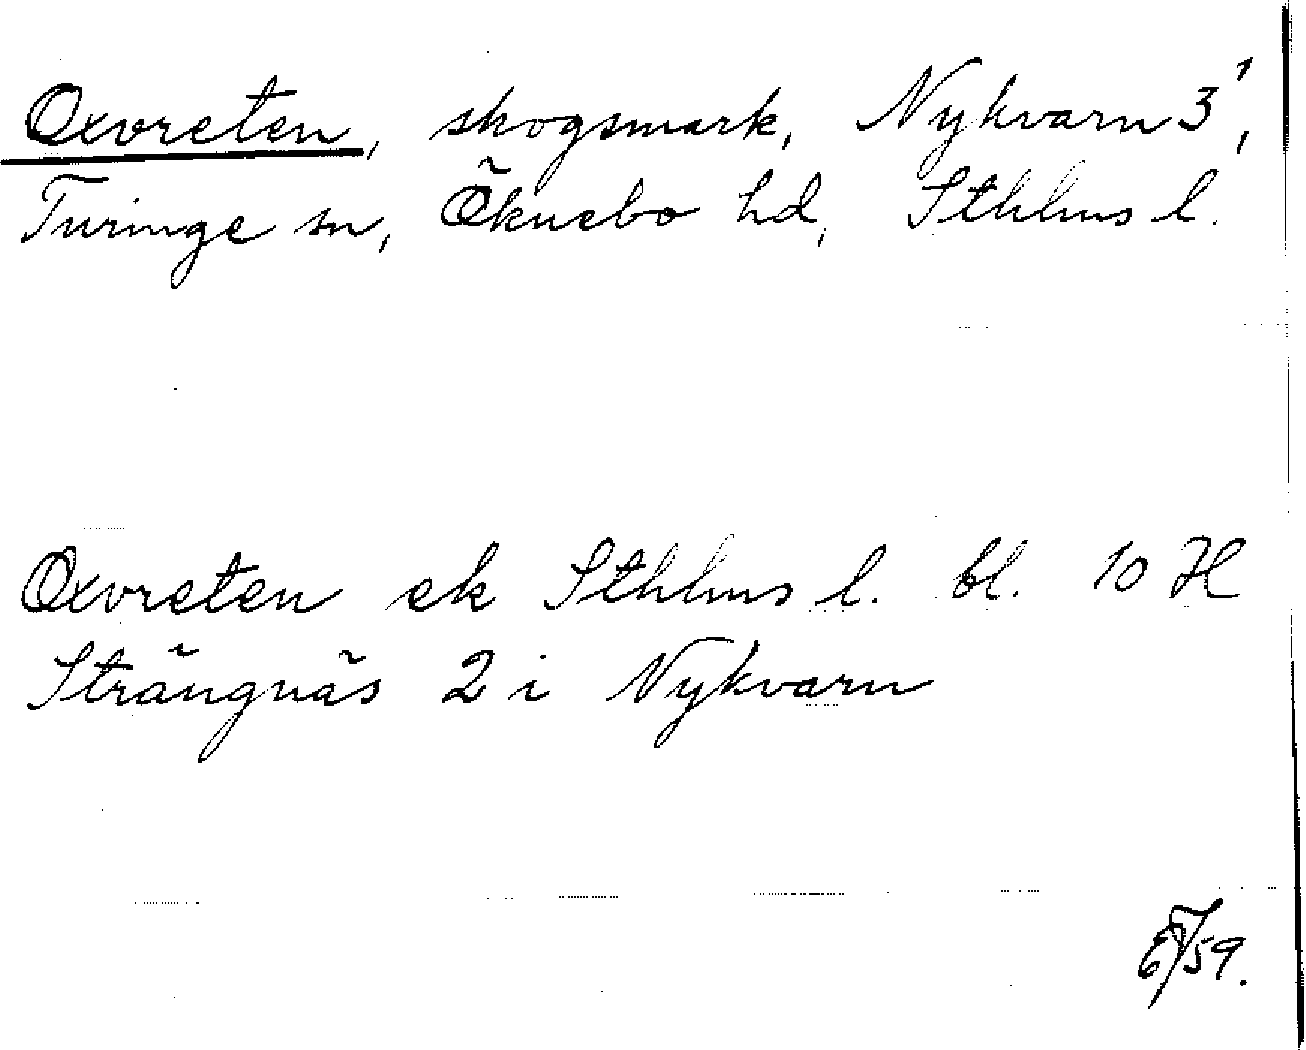 Oxvreten, skogsmark, Nykvarn 3¹,
Turinge sn, Öknebo hd, Sthlms l.
Oxvreten ek Sthlms l. bl. 10 H
Strängnäs 2 i Nykvarn
59.